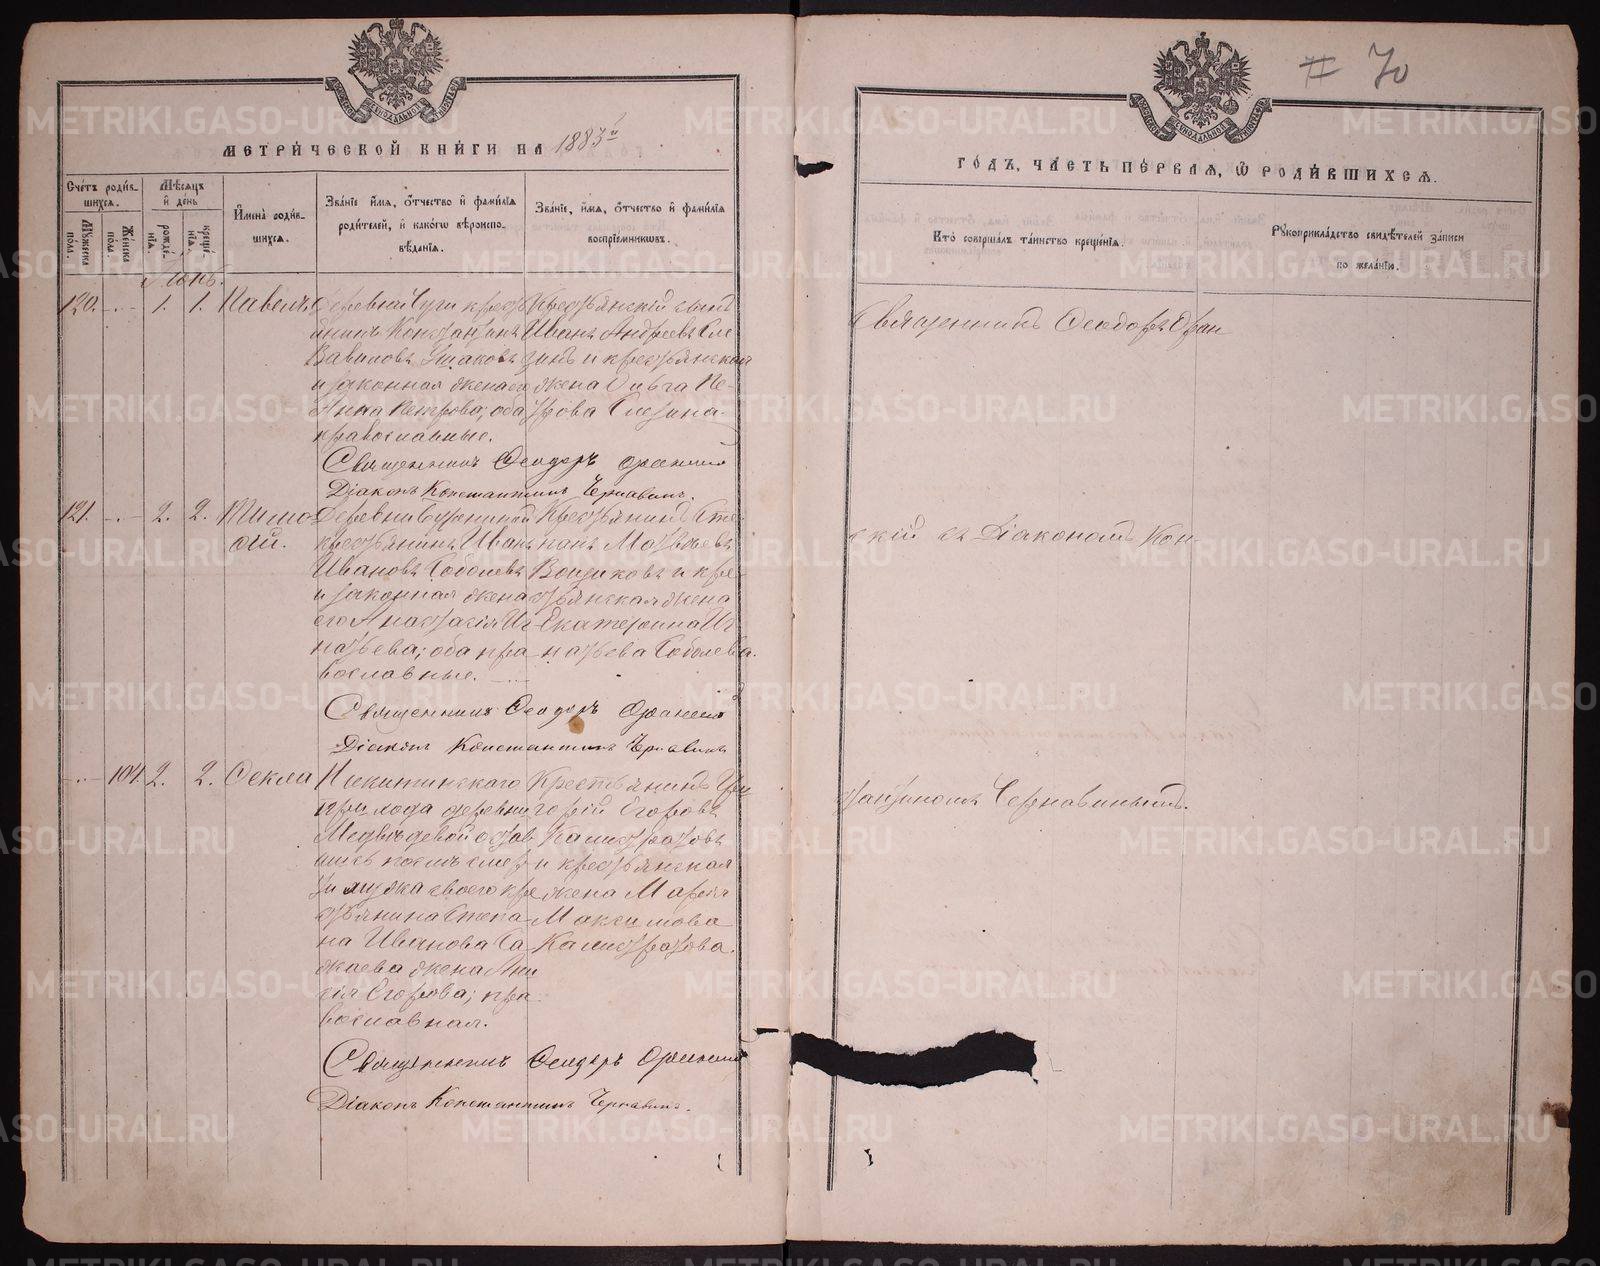 МЕТРИ́ЧЕСКОЙ КНИ́ГИ НА 1883й
Сче́тъ роди́в-
шихся.
Му́жеска по́ла.
Же́нска по́ла.
Мѣ́сяцъ
и҆ де́нь
рожде́-
нїѧ.
креще́-
нїѧ.
И҆мена̀ роди́в-
шихся.
Зва́нїе и҆́мѧ, ѻ҆́тчество и҆ фамилїѧ
роди́телей, и҆ како́гѡ вѣроиспо-
вѣ́данїѧ.
Зва́нїе, и҆́мѧ, ѻ҆́тчество и҆ фами́лїѧ
воспрїе́мникѡвъ.
Іюнь.
120. -..- 1. 1. Павелъ
Деревни Чуги кресть-
янинъ Константинъ
Вавиловъ Ушаковъ
и законная жена его
Анна Петрова; оба
православные.
Крестьянскій сынъ
Иванъ Андреевъ Сле-
зинъ и крестьянская
жена Ольга Пе-
трова Слезина.
Священникъ Ѳеодоръ Оранскій
Діаконъ Константинъ Чернавинъ.
121. -..- 2. 2. Тимо-
ѳей.
Деревни
крестьянинъ Иванъ
Ивановъ Соболевъ
и законная жена
его Анастасія Иг-
натьева; оба пра-
вославные.
Крестьянинъ Сте-
панъ Матвѣевъ
и кре-
стьянская жена
Екатерина Иг-
натьева Соболева.
Священникъ Ѳеодоръ Оранскій
Діаконъ Константинъ Чернавинъ
-..- 104. 2. 2. Ѳекла
Никитинскаго
прихода деревни
Медвѣдевой остав-
шись послѣ смер-
ти мужа своего кре-
стьянина Степа-
на Иванова Са-
жаева жена Ани-
сія Егорова; пра-
вославная.
Крестьянинъ Гри-
горій Егоровъ
Калистратовъ
и крестьянская
жена Марія
Максимова
Калистратова.
Священникъ Ѳеодоръ Оранскій
Діаконъ Константинъ Чернавинъ.
70
ГО́ДЪ, ЧА́СТЬ ПЕ́РВАЯ, Ѡ҆ РОДИ́ВШИХСЯ.
Кто̀ соверша́лъ та́инство креще́нїѧ.
Рукоприкла́дство свидѣ́телей за́писи
по жела́нїю.
Священникъ Ѳеодоръ Оран-
скій съ Діакономъ Кон-
стантиномъ Чернавинымъ.